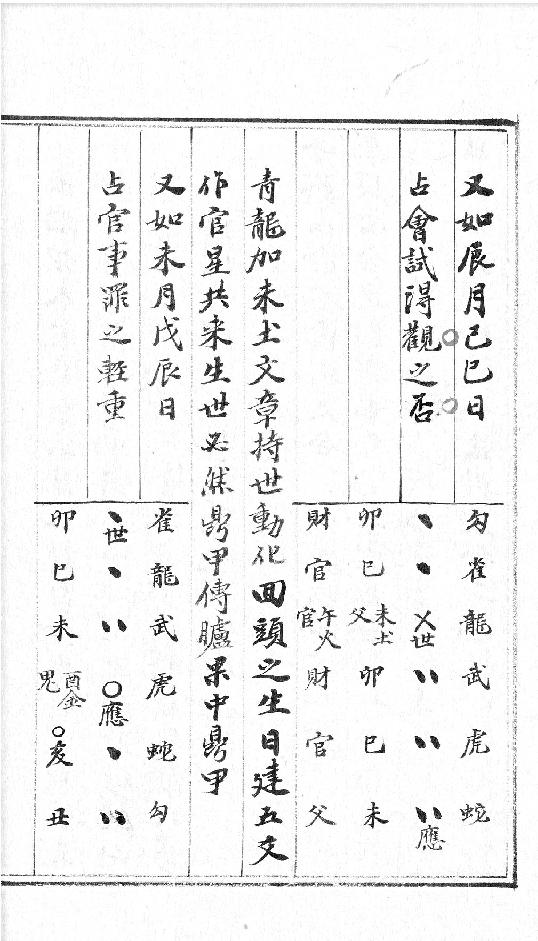 又如辰月己巳日
占會試得觀之否
勾雀龍武虎蛇
丶丶乂世〃〃〃應
卯巳未土父卯巳未
財官午火官財官父
青龍加未土文章持世動化回頭之生日建五爻
作官星共来生世必然鼎甲傳臚果中鼎甲
又如未月戊辰日
占官事罪之輕重
雀龍武虎蛇勾
丶世丶〃〇應丶〃
卯巳未酉金鬼亥丑